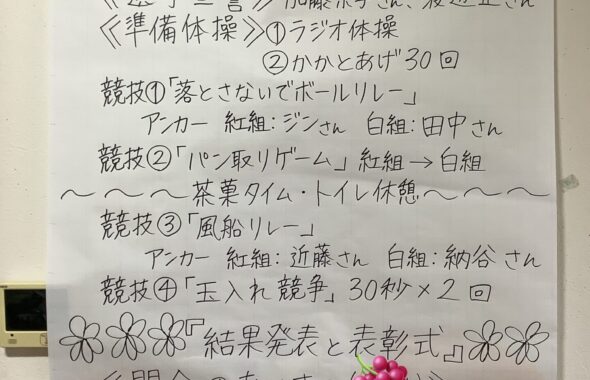 《準備体操》①ラジオ体操
②かかとあげ30回
競技①「落とさないでボールリレー」
アンカー 紅組:ジンさん 白組:田中さん
競技②「パン取りゲーム」紅組→白組
~~~茶菓タイム・トイレ休憩~~~
競技③「風船リレー」
アンカー 紅組:近藤さん 白組:納谷さん
競技④「玉入れ競争」30秒×2回
『結果発表と表彰式』